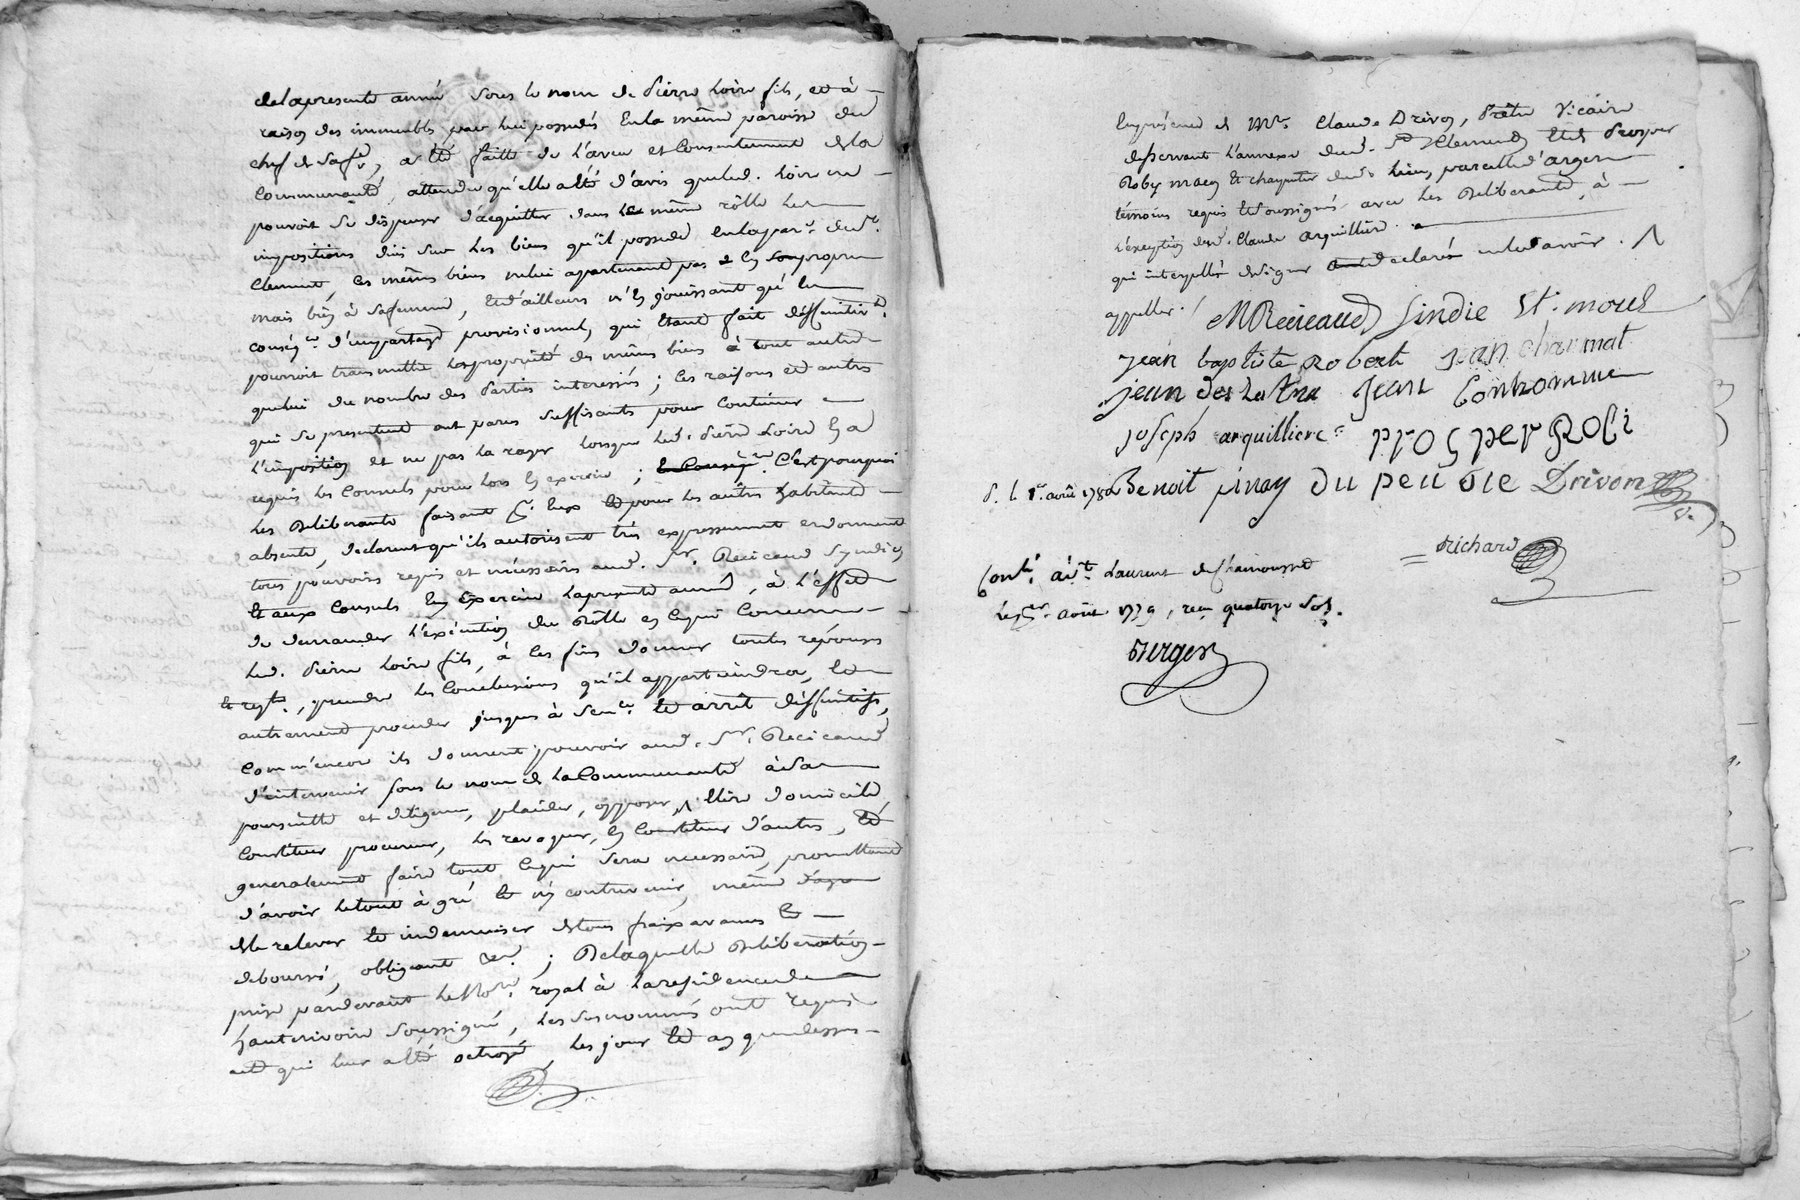 de la presente année sous le nom de Pierre Loire fils, et à
raison des immeubles par lui possedés en la même paroisse du
chef de sa fe, a été faitte de l'aveu et consentement de la
communauté, attendu qu'elle a été d'avis que led. Loire ne
pouvoit se dispenser d'acquitter dans le même rôlle les
impositions dües sur les biens qu'il possede en la par. de St.
Clement, ces mêmes biens ne lui apartenant pas en propre
mais bien à sa femme, et d'ailleurs n'en jouissant qu'en
conséq. d'un partage provisionnel, qui etant fait deffinitivt.
pourroit transmettre la proprieté des mêmes biens à tout autre
que lui du nombre des parties interessées; ces raisons et autres
qui se presentent ont parus suffisants pour continuer
l'imposition et ne pas la rayer lorsque led. Pierre Loire en a
requis les consuls pour lors en exercice; C'est pourquoi
les deliberants faisant pr. eux et pour les autres habitants
absents, declarent qu'ils autorisent très expressement et donnent
tous pouvoirs requis et nécessaires aud. Sr. Recicaud Syndic,
et aux consuls en exercice la presente année, à l'effet
de demander l'exécution du rôlle en ce qui concerne
led. Pierre Loire fils, à ces fins donner toutes réponses
et reqtes, prendre les conclusions qu'il appartiendra, et
autrement proceder jusques à sence. et arrêt deffinitifs,
comm'encore ils donnent pouvoir aud. Sr. Recicaud
d'intervenir sous le nom de la Communauté à sa
poursuitte et diligence, plaider, opposer, élire domicile
constituer procureur, les revoquer, en constituer d'autres, et
generalement faire tout ce qui sera necessaire, promettant
d'avoir le tout à gré et n'y contrevenir, même
de le relever et indemniser de tous frais avancés et
deboursés, obligeant &a.; De laquelle deliberation
prise pardevant le Nore. royal à la residence de
hauterivoire soussigné, les susnommés ont requis
acte qui leur a été octroyé, les jour et an que dessus
En présence de Mre. Claude Drivon, Prêtre Vicaire
desservant l'annexe dud. St. Clement, et de Prosper
Roby maçon et charpentier dud. lieu, parcelle d'argen
témoins requis et soussignés avec les deliberants, à
l'exception dud. Claude Arquilliere
qui interpellé de signer a declaré ne le savoir.
appeller.
MRecicaud Sindic St. morel
jean baptiste Robert jean charmat
jean des la tne jean bonhomme
joseph arquilliere prosper RoBi
P. l. 1er. août 1780 Benoit pinay du peu ble Drivon
Richard
Conlé. à St. Laurent de Chamousset
le 1er. août 1779, recu quatorze sols.
Berger